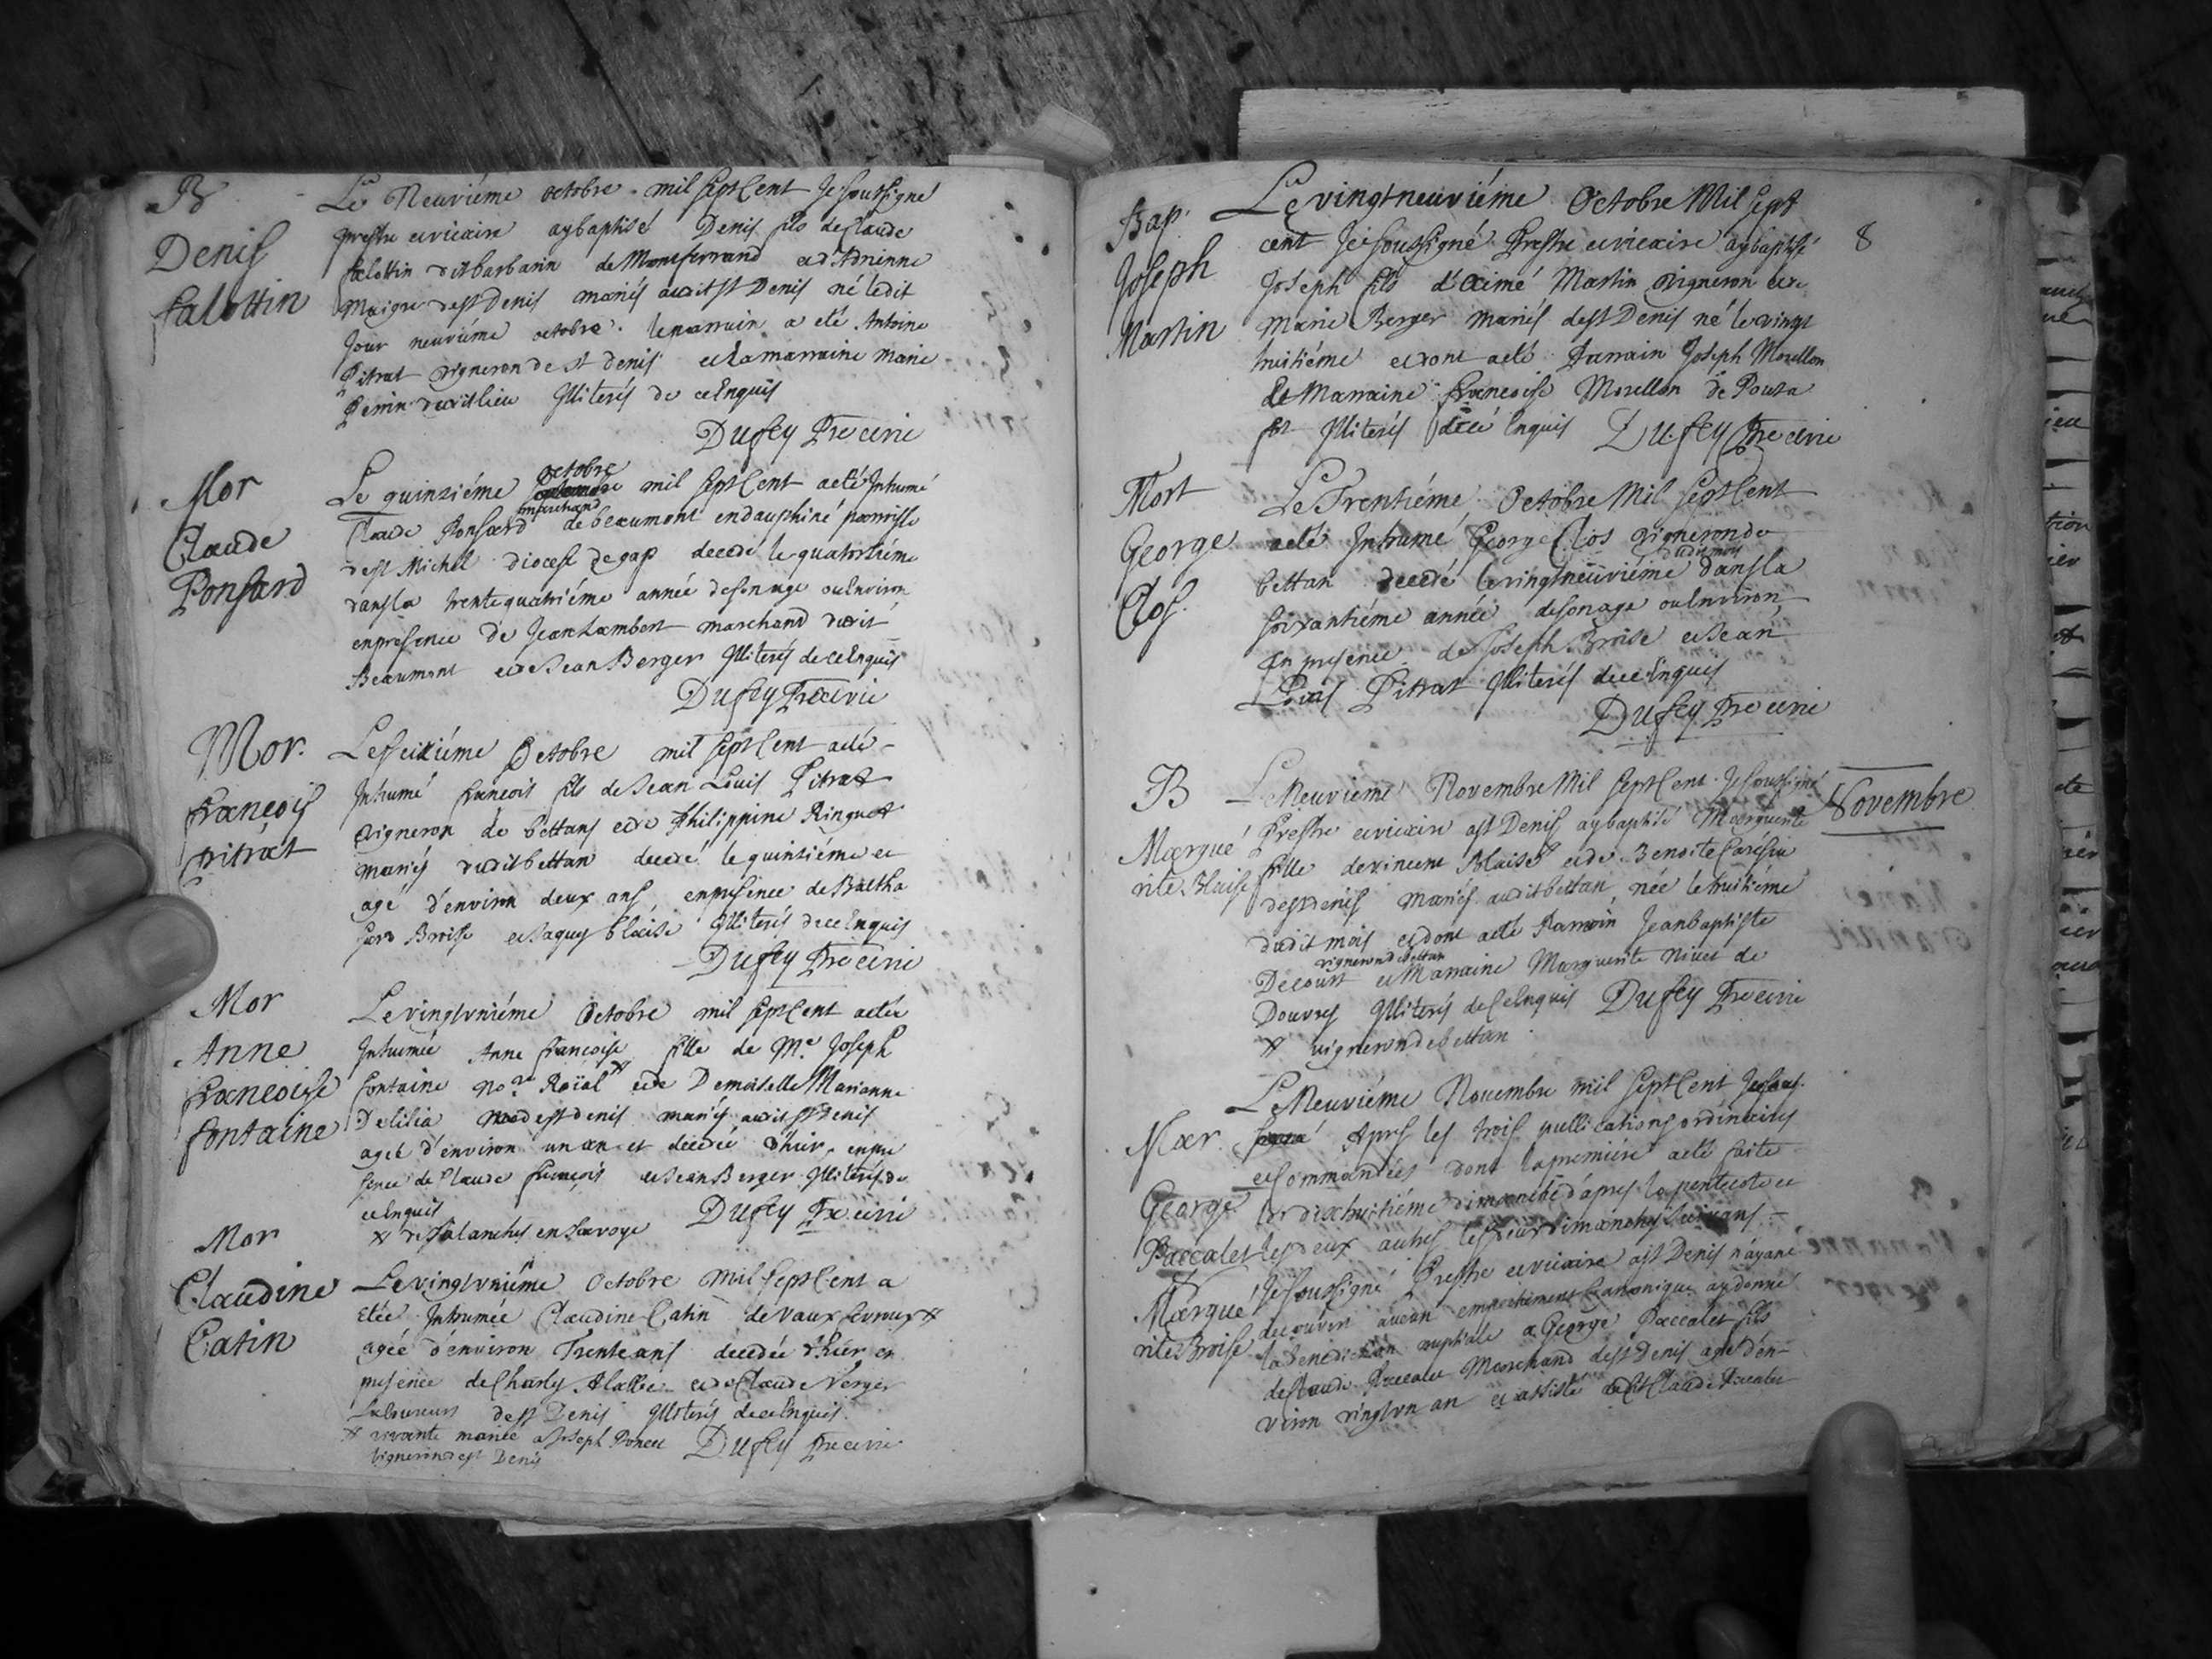 B
Denis
falottin
Le Neuviéme octobre mil sept Cent Je soussigné
prestre et vicaire ay baptisé Denis fils de Claude
falottin dit barbarin de Monferrand et d'Adrienne
Maigre de st Denis mariés audit st Denis né ledit
Jour neuviéme octobre. le parrain a eté Antoine
Pitrat vigneron de st denis et la marraine marie
Perrin dudit lieu Illiterés de ce Enquis
Dufey Pre et vic
Mor
Claude
Ponsard
Le quinziéme octobre mil sept Cent a eté Inhumé
Claude Ponsard marchand de beaumont en dauphiné parroisse
de st Michel diocese de gap decedé le quatorziéme
dans la trente quatriéme année de son age ou Environ
en presence de Jean Lambert marchand dudit
Beaumont et de Jean Berger Illiterés de ce Enquis
Dufey Pre et vic
Mor.
françois
pitrat
Le seiziéme Octobre mil sept Cent a eté
Inhumé francois fils de Jean Louis Pitrat
vigneron de bettans et de Philippine Ringuet
mariés dudit bettan decedé le quinziéme et
agé d'environ deux ans en presence de Baltha
sard Broise et Jaques blaise Illiterés de ce Enquis
Dufey Pre et vic
Mor
Anne
francoise
fontaine
Le vingt vniéme Octobre mil sept Cent a etée
Inhumée Anne francoise fille de Me Joseph
fontaine nore Roïal x et de Demoiselle Marianne
Delilia de st denis mariés audit st Denis
agée d'environ un an et decedée d'hier, en pre
sence de Claude françois et Jean Berger Illiterés de
ce Enquis
Dufey Pre et vic
x de Salanches en Savoye
Mor
Claudine
Catin
Le vingt vniéme Octobre mil sept Cent a
etée Inhumée Claudine Catin de vaux fevroux x
agée d'environ Trente ans decedée d'hier en
presence de Charles et de Claude Verger
Laboureurs de st Denis Illiterés de ce Enquis.
x vivante mariée a Joseph Poncet
vigneron de st Denis
Dufey Pre et vic
8
Bap.
Joseph
Martin
Le vingt neuviéme Octobre Mil sept
cent Je soussigné Prestre et vicaire ay baptisé
Joseph fils d'Aimé Martin vigneron et de
Marie Berger mariés de st Denis né le vingt
huitiéme et dont a eté Parrain Joseph Morellon
Et Marraine francoise Morellon de Pouza
Illiterés de ce Enquis Dufey Pre et vic
Mort
George
Clos.
Le Trentiéme Octobre Mil sept Cent
a eté Inhumé George Clos vigneron de
bettan decedé le vingt neuviéme dudit mois dans la
soixantiéme année de son age ou Environ
En presence de Joseph Broise et Jean
Louis Pitrat Illiterés de ce Enquis
Dufey Pre et vic
Novembre
B
Margue
rite Blaise
Le Neuviéme Novembre Mil sept Cent Je soussigné
Prestre et vicaire a st Denis ay baptisé Marguerite
fille de vincent Blaise x et de Benoite
de st denis mariés audit bettan, née le huitiéme
dudit mois et dont a eté Parrain Jean baptiste
Decourt vigneron de bettan et Marraine Marguerite Nivet de
Douvres Illiterés de Ce Enquis Dufey Pre et vic
x vigneron de bettan
Mar
George
Paccalet
x
Margue
rite Broise
Le Neuviéme Novembre mil sept Cent
Apres les trois publications ordinaires
et Commandées dont la premiére a eté faite
le dixhuitiéme dimanche d'apres la pentecote et
les deux autres les deux dimanches suivans
Je soussigné Prestre et vicaire a st Denis n'ayant
decouvert aucun empechement Canonique ay donné
la benediction nuptiale a George Paccalet fils
de Claude Paccalet Marchand de st Denis agé d'en-
viron vingt vn an et assisté dudit Claude Paccalet